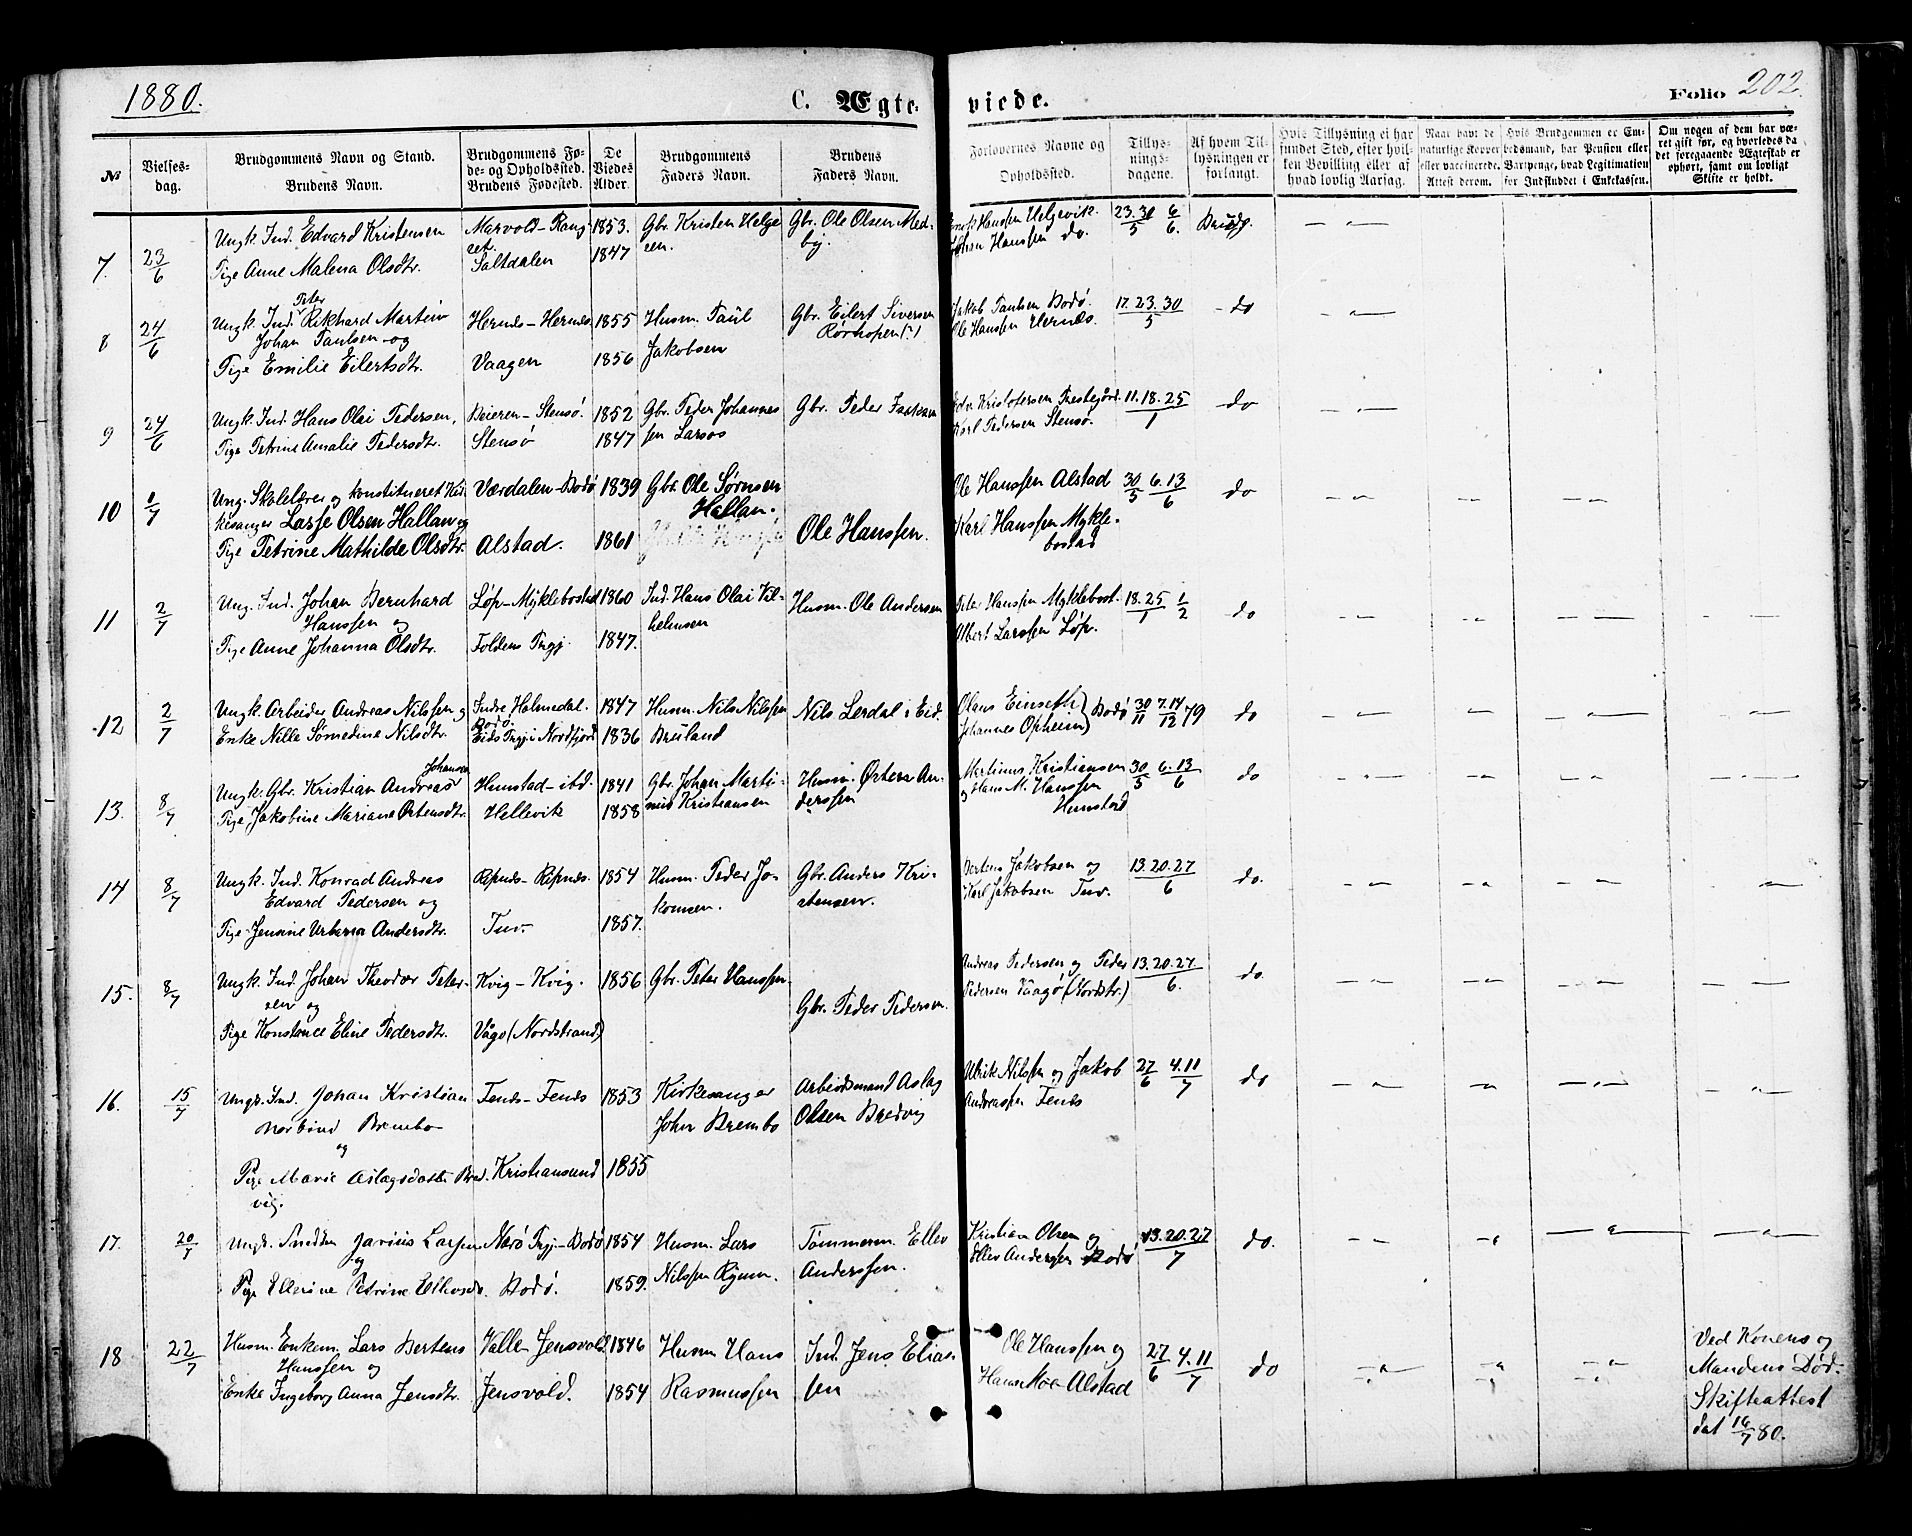 1880.
C. Ægte-
viede.
Folio 202.
No
Vielses-
dag.
Brudgommens Navn og Stand.
Brudens Navn.
Brudgommens Fø-
de- og Opholdssted.
Brudens Fødested.
De
Viedes
Alder.
Brudgommens
Faders Navn.
Brudens
Faders Navn.
Forlovernes Navne og
Opholdssted.
Tillys-
nings-
dagene.
Af hvem Til-
lysningen er
forlangt.
Hvis Tillysning ei har
fundet Sted, efter hvil-
ken Bevilling eller af
hvad lovlig Aarsag.
Naar havt de
naturlige Kopper
eller vaccinerede.
Attest derom.
Hvis Brudgommen er Em-
bedsmand, har Pension eller
Vartpenge, hvad Legitimation
for Indskuddet i Enkekassen.
Om nogen af dem har væ-
ret gift før, og hvorledes da
det foregaaende Ægteskab er
ophørt, samt om lovligt
Skifte er holdt.
7. 23/6
Ungk. Ind. Edvard Kristensen
Tige Anne Malena Olsdtr.
Marvold-Rang
set.
Saltdalen
1853.
1847
Gbr. Kristen Helge
sen.
Gbr. Ole Olsen Med-
by.
Hanssen Helgevik.
Hanssen do.
23.30/5 6/6.
Brudg.
8 24/6
Ungk. Ind. Peter Rikhard Martin
Johan Paulsen og
Pige Emilie Eilertsdtr.
Hernes-Hernes
Vaagen
1855
1856
Husm. Paul
Jakobsen
Gbr. Eilert Siversen
Rørhopen (?)
Jakob Paulsen Bodø.
Ole Hanssen Hernæs.
17.23.30/5
do
9 24/6
Ungk. Ind. Hans Olai Pedersen,
Pige Petrine Amalie Pedersdtr.
Beieren-Stensø.
Stensø
1852
1847
Gbr. Peder Johannes
sen Larsos
Gbr. Peder Isaksen
Edv. Kristofersen Prestegård.
Karl Pedersen Stensø.
11.18.25/1
do
10 1/7
Ung. Skolelærer og konstitueret Kir-
kesanger Lasse Olsen Hallan og
Pige Petrine Mathilde Olsdtr.
Værdalen-Bodø
Alstad.
1839
1861
Gbr. Ole Sørnsen
Hallan.
Ole Hanssen.
Ole Hanssen Alstad
Karl Hanssen Mykle-
bostad
30/5 6.13/6
do
11 2/7
Ung. Ind. Johan Bernhard
Hanssen og
Pige Anne Johanna Olsdtr.
Løp-Myklebostad
Foldens Prgj.
1860
1847.
Ind. Hans Olai Vil-
helmsen
Husm. Ole Andersen
Peter Hanssen Myklebost.
Albert Larssen Løp.
18.25/1 1/2
do
12 2/7
Ungk. Arbeider Andreas Nilssen og
Enke Nille Sømedine Nilsdtr.
Indre Holmedal.
Bodø.
Eids Prgj i Nordfjord
1847
1836
Husm. Nils Nilssen
Bruland
Nils Lerdal i Eid.
Olaus Einseth
Johannes Opheim) Bodø
30/11 7.14/12 79
do
13. 8/7
Ungk. Gbr. Kristian Andreas Johansen
Pige Jakobine Mariane Ørtensdtr.
Hunstad-ibd.
Hellevik
1841
1858
Gbr. Johan Marti-
nus Kristiansen
Husm. Ørten An-
derssen
Martinus Kristiansen
og Hans M. Hanssen
Hunstad
30/5 6.13/6
do
14 8/7
Ungk. Ind. Konrad Andreas
Edvard Pedersen og
Pige Jensine Urbana Andersdtr.
Ripnes-Ripnes.
Tuv.
1854
1857.
Husm. Peder Jo-
komsen.
Gbr. Anders Kri-
stensen.
Jakobsen og
Karl Jakobsen Tuv.
13.20.27/6
do.
15. 8/7
Ungk. Ind. Johan Theodor Peter-
sen og
Pige Konstance Eline Pedersdtr.
Kvig-Kvig.
Vågø (Nordstrand)
1856
Gbr. Peter Hanssen.
Gbr. Peder Pedersen.
Andreas Pedersen og Peder
Pedersen Vaagø (Nordstr.)
13.20.27/6.
do.
16. 15/7
Ungk. Ind. Johan Kristian
Brembo
og
Pige Marie Aslagsdatter Bred-
vig.
Fenes-Fenes
Kristiansund
1853
1855
Kirkesanger
John Brembo
Arbeidsmand Aslag
Olsen Bredvig
Ulrik Nilssen og Jakob
Andreassen Fenes
27/6 4.11/7
do
17. 20/7
Ungk. Smeden Jarius Larsen
og
Pige Ellerine Petrine Ellevsd.
Nærø Prgj-Bodø
Bodø.
1854
1859.
Husm. Lars
Nilssen
Tømmerm. Ellev
Anderssen.
Kristian Olsen og
Ellev Anderssen Bodø
13.20.27/7
do.
18 22/7
Husm. Enkem. Lars Bertens
Hanssen og
Enke Ingeborg Anna Jensdtr.
Valle-Jensvold
Jensvold.
1846
1854
Husm Hans
Rasmussen
Ind. Jens Elias
sen
Ole Hanssen og
Hans Moe Alstad
27/6 4.11/7
do
Ved Konens og
Mandens Død.
Skifteattest
dat 16/7 80.